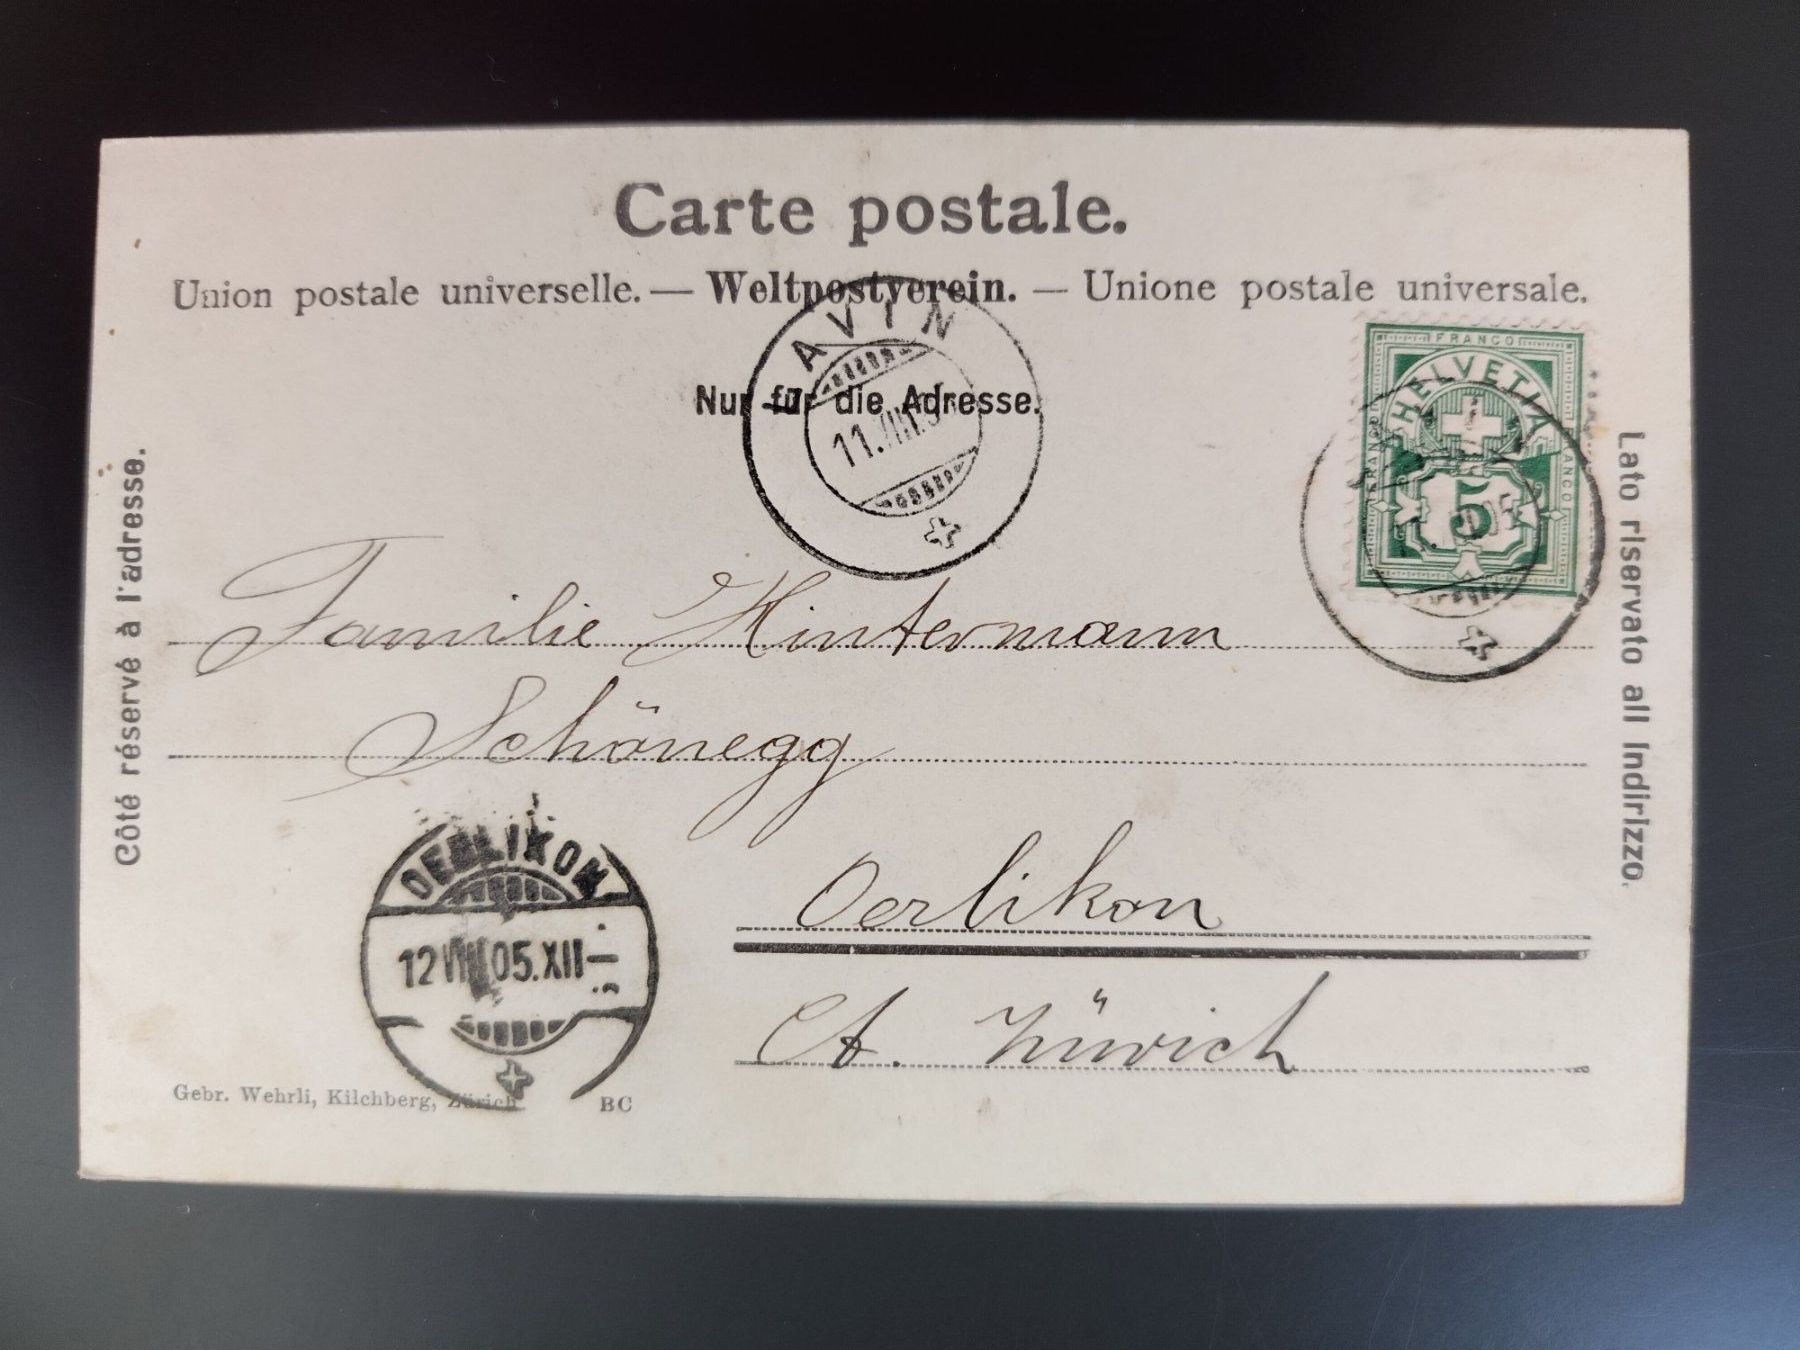 Carte postale.
Union postale universelle. — Weltpostverein. — Unione postale universale.
AVIN
Nur für die Adresse.
11.VIII.05
FRANCO
HELVETIA
FRANCO
FRANCO
5
Côté réservé à l'adresse.
Lato riservato all indirizzo.
Familie Hintermann
Schönegg
Oerlikon
Ct. Zürich
OERLIKON
12.VIII.05.XII—
Gebr. Wehrli, Kilchberg, Zürich
BC